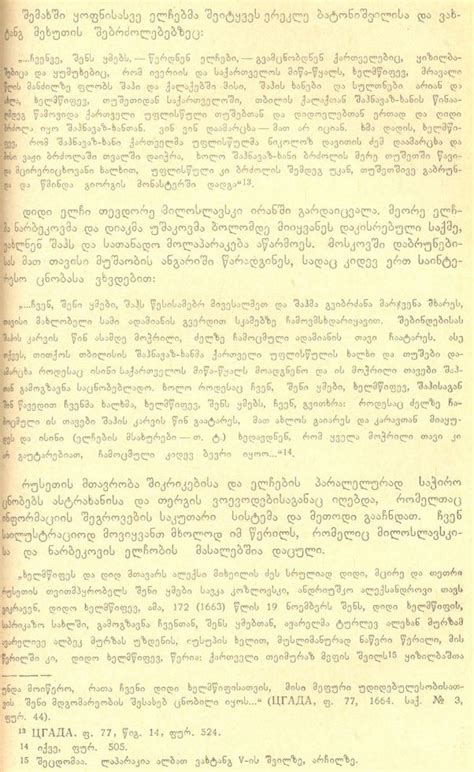 შემახში ყოფნისასვე ელჩებმა შეიტყვეს ერეკლე ბატონიშვილისა და ვახ-
ტანგ მეხუთის შებრძოლებებზეც:
„...ჩვენვე, შენს ყმებს, — წერდნენ ელჩები, — გვამცნობდნენ ქართველებიც, ყიზილბა-
შებიცა და ყუმუხებიც, რომ ივერიის და საქართველოს მიწა-წყალს, ხელმწიფევ, მრავალი
წლის მანძილზე ფლობს შაჰი და ქალაქებში მისი, შაჰის ხანები და სულთნები არიან და
ხელმწიფევ, თუშეთიდან საქართველოში, თბილის ქალაქთან შაჰნავაზ-ხანის წინაა-
ღმდეგ წამოვიდა ქართველი უფლისწული თუშებთან და დიდოელებთან ერთად და დიდი
ბრძოლა იყო შაჰნავაზ-ხანთან. ვინ ვინ დაამარცხა — მათ არ იციან. ხმა დადის, ხელმწი-
ფევ, რომ შაჰნავაზ-ხანი ქართველმა უფლისწულმა ნიკოლოზ დავითის ძემ დაამარცხა და
მისი ვაჟი ბრძოლაში თვალში დაიჭრა, ხოლო შაჰნავაზ-ხანი ბრძოლის მერე თუშეთში წავი-
და მცირერიცხოვანი ხალხით, უფლისწული კი ბრძოლის შემდეგ უკან, თუშიშევე გაბრუნ-
და და წმინდა გიორგის მონასტერში დადგა“13.
დიდი ელჩი თევდორე მილოსლავსკი ირანში გარდაიცვალა, მეორე ელჩ-
მა ნარბეკოვმა და დიაკმა უშაკოვმა ბოლომდე მიიყვანეს დაკისრებული საქმე,
ეახლნენ შაჰს და სათანადო მოლაპარაკება აწარმოეს. მოსკოვში დაბრუნები-
სას მათ თავისი მუშაობის ანგარიში წარადგინეს, სადაც კიდევ ერთ საინტე-
რესო ცნობასა ვხვდებით:
„...ჩვენ, შენი ყმები, შაჰს წესისამებრ მივესალმეთ და შაჰმა გვიბრძანა მარჯვენა მხარეს,
თავისი მახლობელი სამი ადამიანის გვერდით სკამებზე ჩამოვმსხდარიყავით. შებინდებისას
შაჰის კარვის წინ ასამდე მოჭრილი, ძელზე ჩამოცმული ადამიანის თავი ჩაატარეს. ასე
თქვეს, თითქოს თბილისის შაჰნავაზ-ხანმა ქართველი უფლისწულის ხალხი და თუშები და-
ამარცხა როდესაც ისინი საქართველოს მიწა-წყალს მოადგნენო და ის მოჭრილი თავები შაჰ-
თან გამოგზავნა საცნობებლად. ხოლო როდესაც ჩვენ, შენი ყმები, ხელმწიფევ, შაჰისაგან
შინ წავედით ჩვენმა ხალხმა, ხელმწიფევ, შენს ყმებს, ჩვენ, გვითხრა: როდესაც ძელზე ჩა-
მოცმული ის თავები შაჰის კარვის წინ გაატარეს, მათ ახლოს გაიარეს და კარავთან მიაყუ-
დეს და ისინი (ელჩების მსახურები — თ. ტ.) ხედავდნენ, რომ ყველა მოჭრილი თავი კი
არ გაუტარებიათ, ჩამოცმული კიდევ ბევრი იყოო...“14.
რუსეთის მთავრობა შიკრიკებისა და ელჩების პარალელურად საჭირო
ცნობებს ასტრახანისა და თერგის ვოევოდებისაგანაც იღებდა, რომელთაც
ინფორმაციის შეგროვების საკუთარი სისტემა და მეთოდი გააჩნდათ. ჩვენ
საილუსტრაციოდ მოვიყვანთ მხოლოდ იმ წერილს, რომელიც მილოსლავსკი-
სა და ნარბეკოვის ელჩობის მასალებშია დაცული.
„ხელმწიფეს და დიდ მთავარს ალექსი მიხეილის ძეს სრულიად დიდი, მცირე და თეთრი
რუსეთის თვითმპყრობელს შენი ყმები სავკა კოზლოვსკი, ანდრიუშკო ალექსანდროვი თავს
გიკრავენ, დიდო ხელმწიფევ, ამა, 172 (1663) წლის 19 ნოემბერს შენს, დიდი ხელმწიფის,
საპრიკაზო სახლში, გამოგზავნა ჩვენთან, შენს ყმებთან, ავარელმა ტურლევ ალეხან მურზამ
ავარელივე ალბეკ მურზას უზდენის, ხელით, მუსლიმანურად ნაწერი წერილი, მის
წერილში კი, დიდო ხელმწიფევ, წერია: ქართველი თეიმურაზ მეფის შვილს15 ყიზილბაშთა
უნდა მოიწერო, რათა ჩვენი დიდი ხელმწიფისათვის, მისი მეფური უდიდებულესობისათ-
ვის შენი მდგომარეობის შესახებ ცნობილი იყოს...“ (ЦГАДА, ф. 77, 1664. საქ. № 3,
ფურ. 44).
13 ЦГАДА. ф. 77, წიგ. 14, ფურ. 524.
14 იქვე, ფურ. 505.
15 შეცდომაა. ლაპარაკია ალბათ ვახტანგ V-ის შვილზე, არჩილზე.